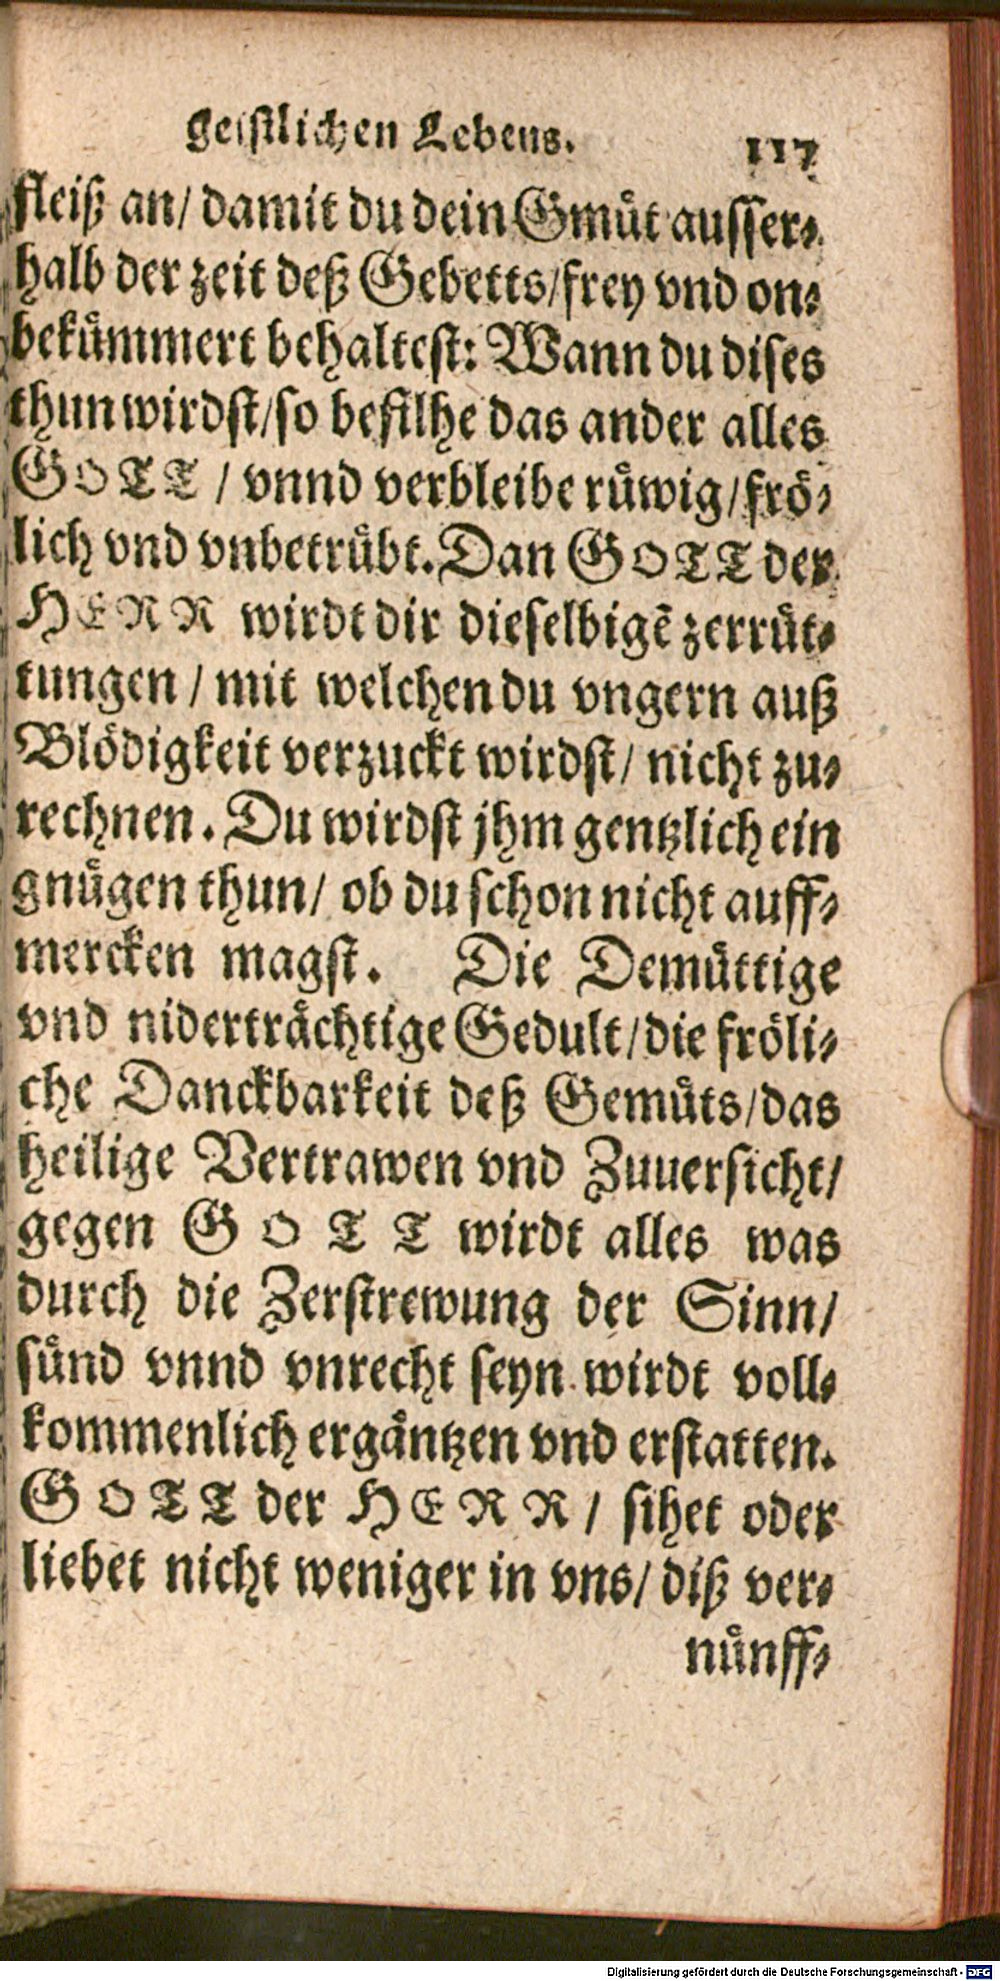 geistlichen Lebens. 117
fleiß an/ damit du dein Gmuͤt ausser⸗
halb der zeit deß Gebetts/frey vnd on⸗
bekuͤmmert behaltest: Wann du dises
thun wirdst/so befilhe das ander alles
GOTT / vnnd verbleibe ruͤwig/froͤ⸗
lich vnd vnbetruͤbt. Dan GOTT der
HERR wirdt dir dieselbigẽ zerruͤt⸗
tungen / mit welchen du vngern auß
Bloͤdigkeit verzuckt wirdst/ nicht zu⸗
rechnen. Du wirdst jhm gentzlich ein
gnuͤgen thun/ ob du schon nicht auff⸗
mercken magst. Die Demuͤttige
vnd nidertraͤchtige Gedult/die froͤli⸗
che Danckbarkeit deß Gemuͤts/das
heilige Vertrawen vnd Zuuersicht/
gegen GOTT wirdt alles was
durch die Zerstrewung der Sinn/
suͤnd vnnd vnrecht seyn wirdt voll⸗
kommenlich ergaͤntzen vnd erstatten.
GOTT der HERR / sihet oder
liebet nicht weniger in vns/ diß ver⸗
nuͤnff⸗
Digitalisierung gefördert durch die Deutsche Forschungsgemeinschaft - DFG